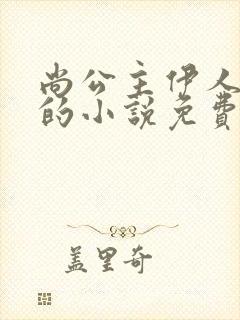 尚公主伊人
的小説免費
盖里奇